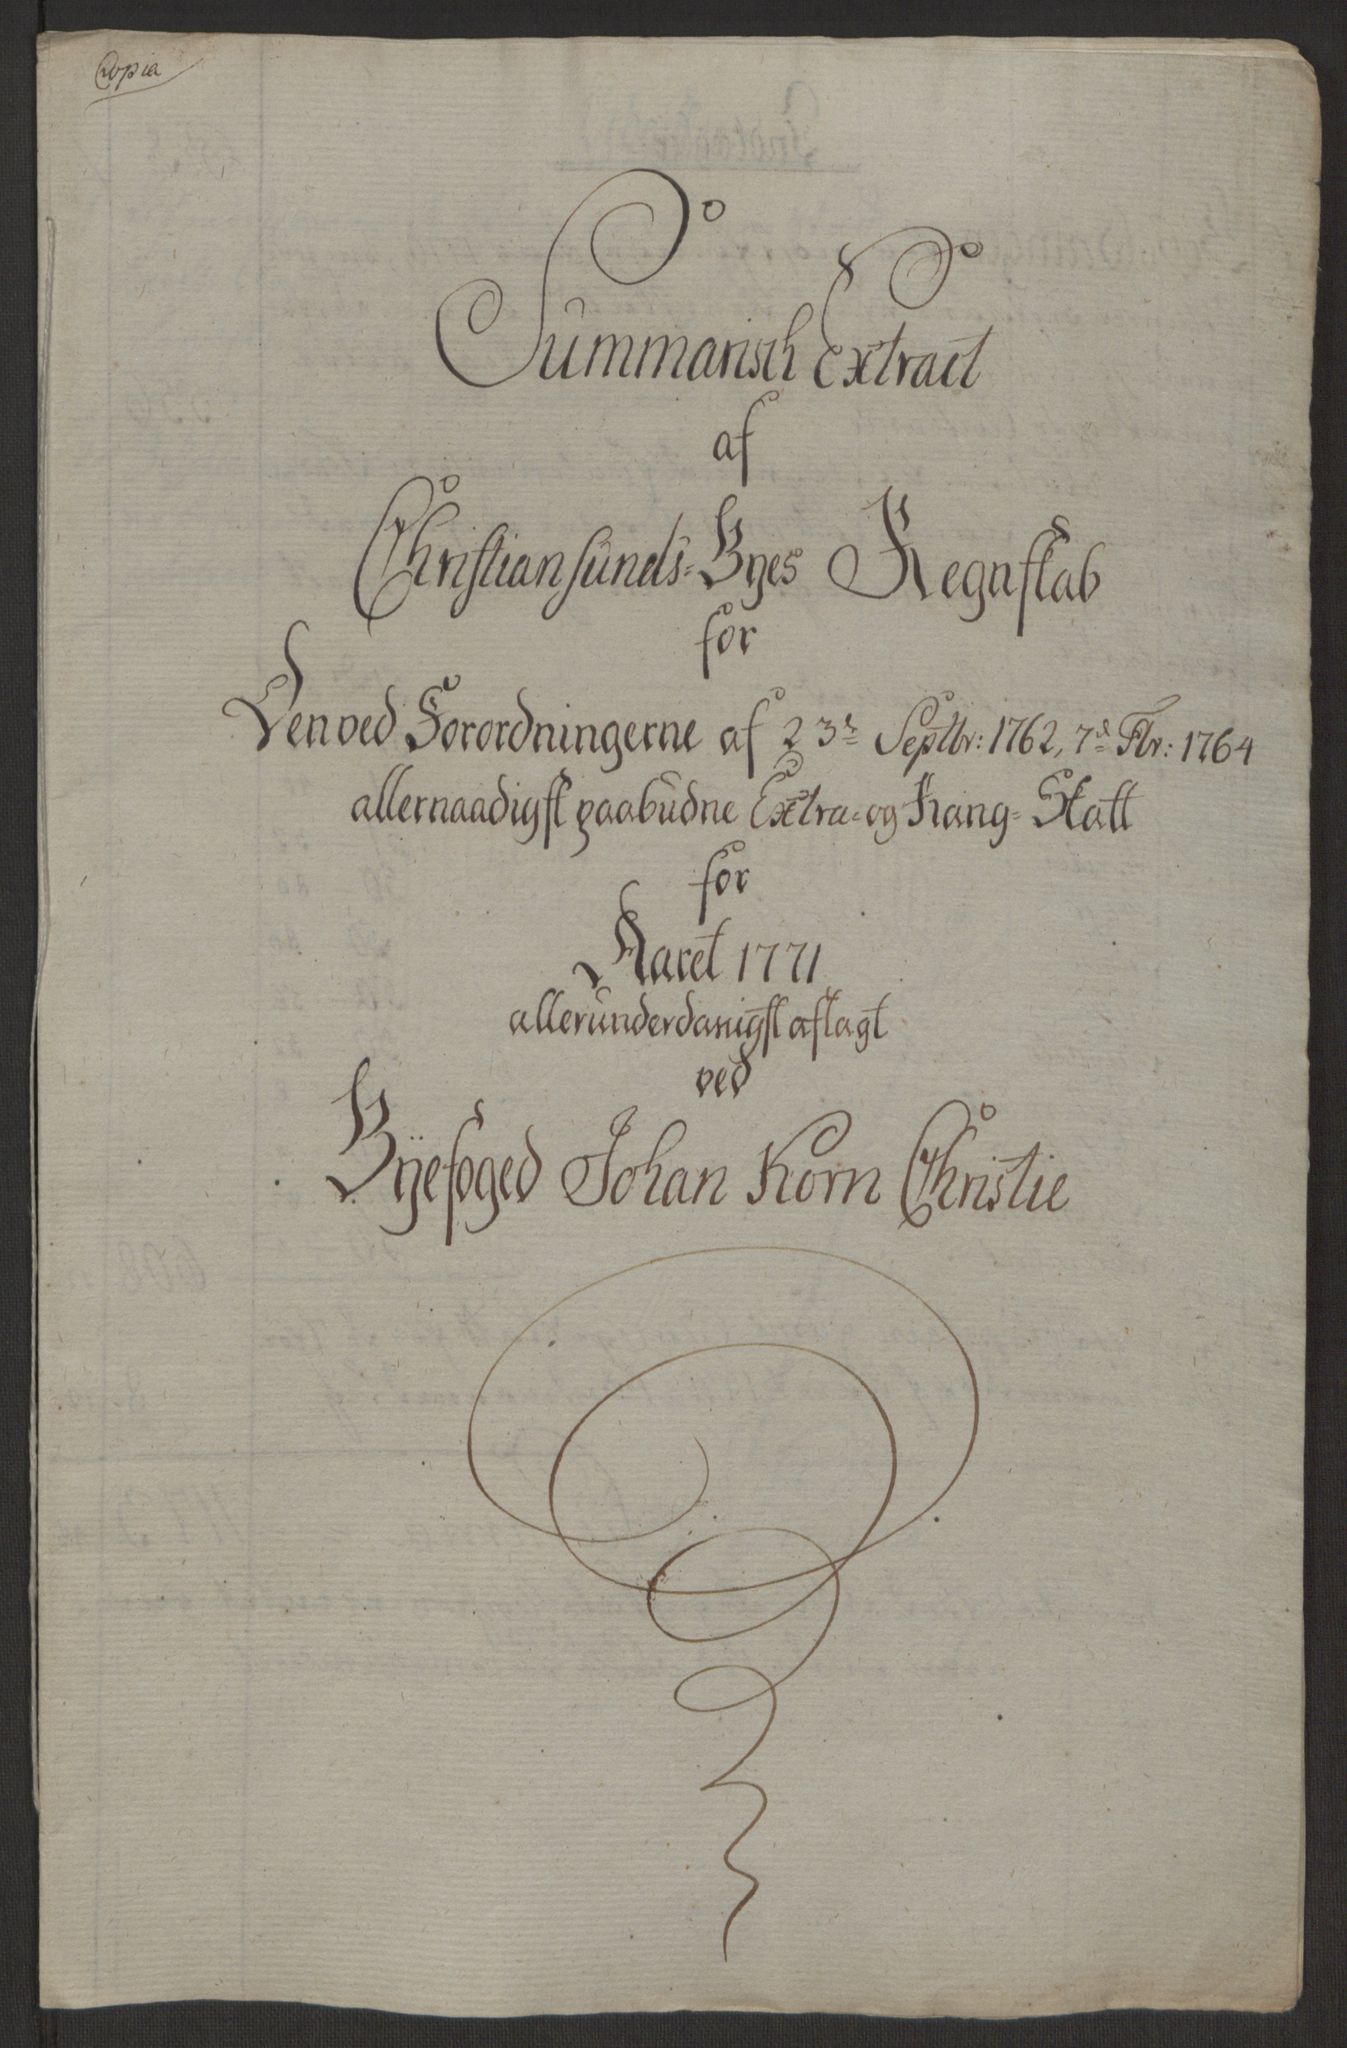 Copia
Summarisch Extract
af
Christiansunds-Byes Regnskab
for
Den ved Forordningerne af 23de Septbr: 1762, 7de Fbr: 1764
allernaadigst paabudne Extra- og Rang-Skatt
for
Aaret 1771
allerunderdanigst aflagt
ved
Byefoged Johan Korn Christie